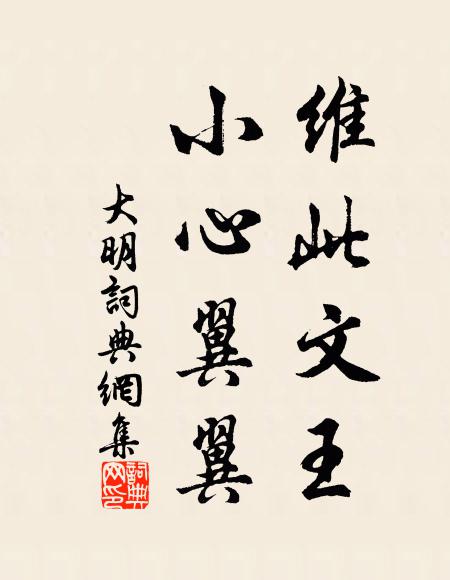 維此文王
小心翼翼
大明詞典網集
詞典网印